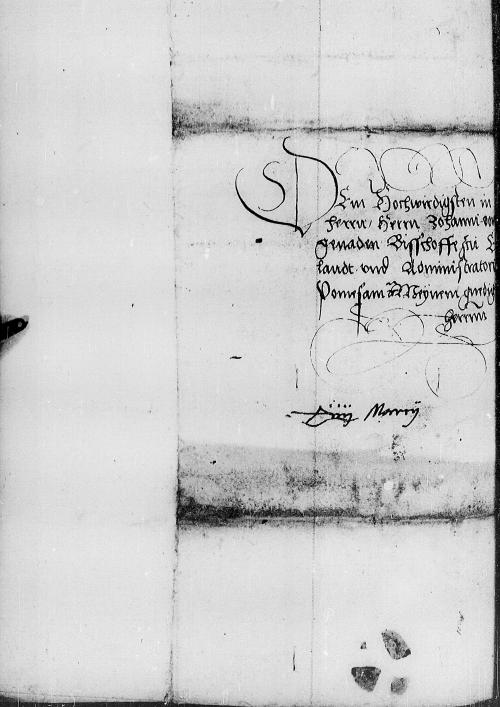 Dem Hochwirdigsten in
herrn, Herrn Johanni
genaden Bisschoffe zu
landt vnd Administratori
Pomesam Meynem gnedig
Herrnn
Marcij